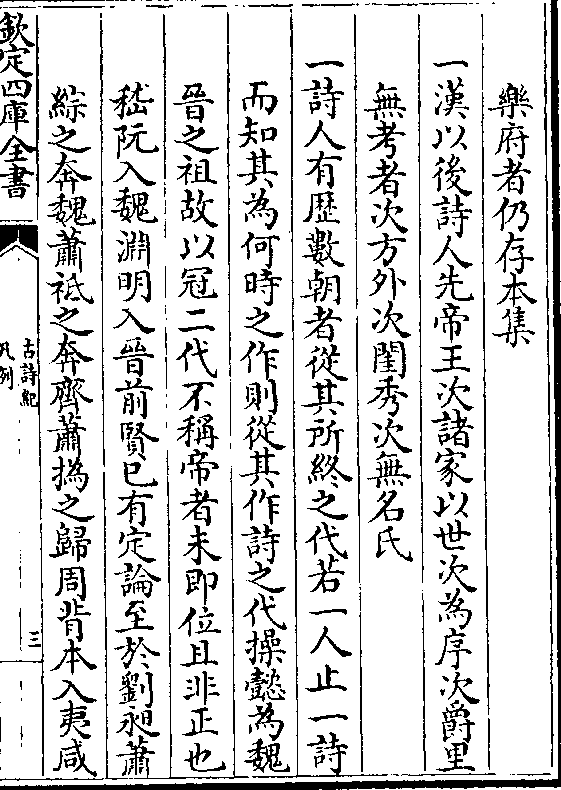 樂府者仍存本集
一漢以後詩人先帝王次諸家以世次為序次爵里
無考者次方外次閨秀次無名氏
一詩人有歴數朝者從其所終之代若一人止一詩
而知其為何時之作則從其作詩之代操懿為魏
晉之祖故以冠二代不稱帝者未即位且非正也
嵇阮入魏淵明入晉前賢已有定論至於劉昶蕭
綜之奔魏蕭祗之奔齊蕭撝之歸周背本入夷咸
欽定四庫全書
古詩紀
凡例
三